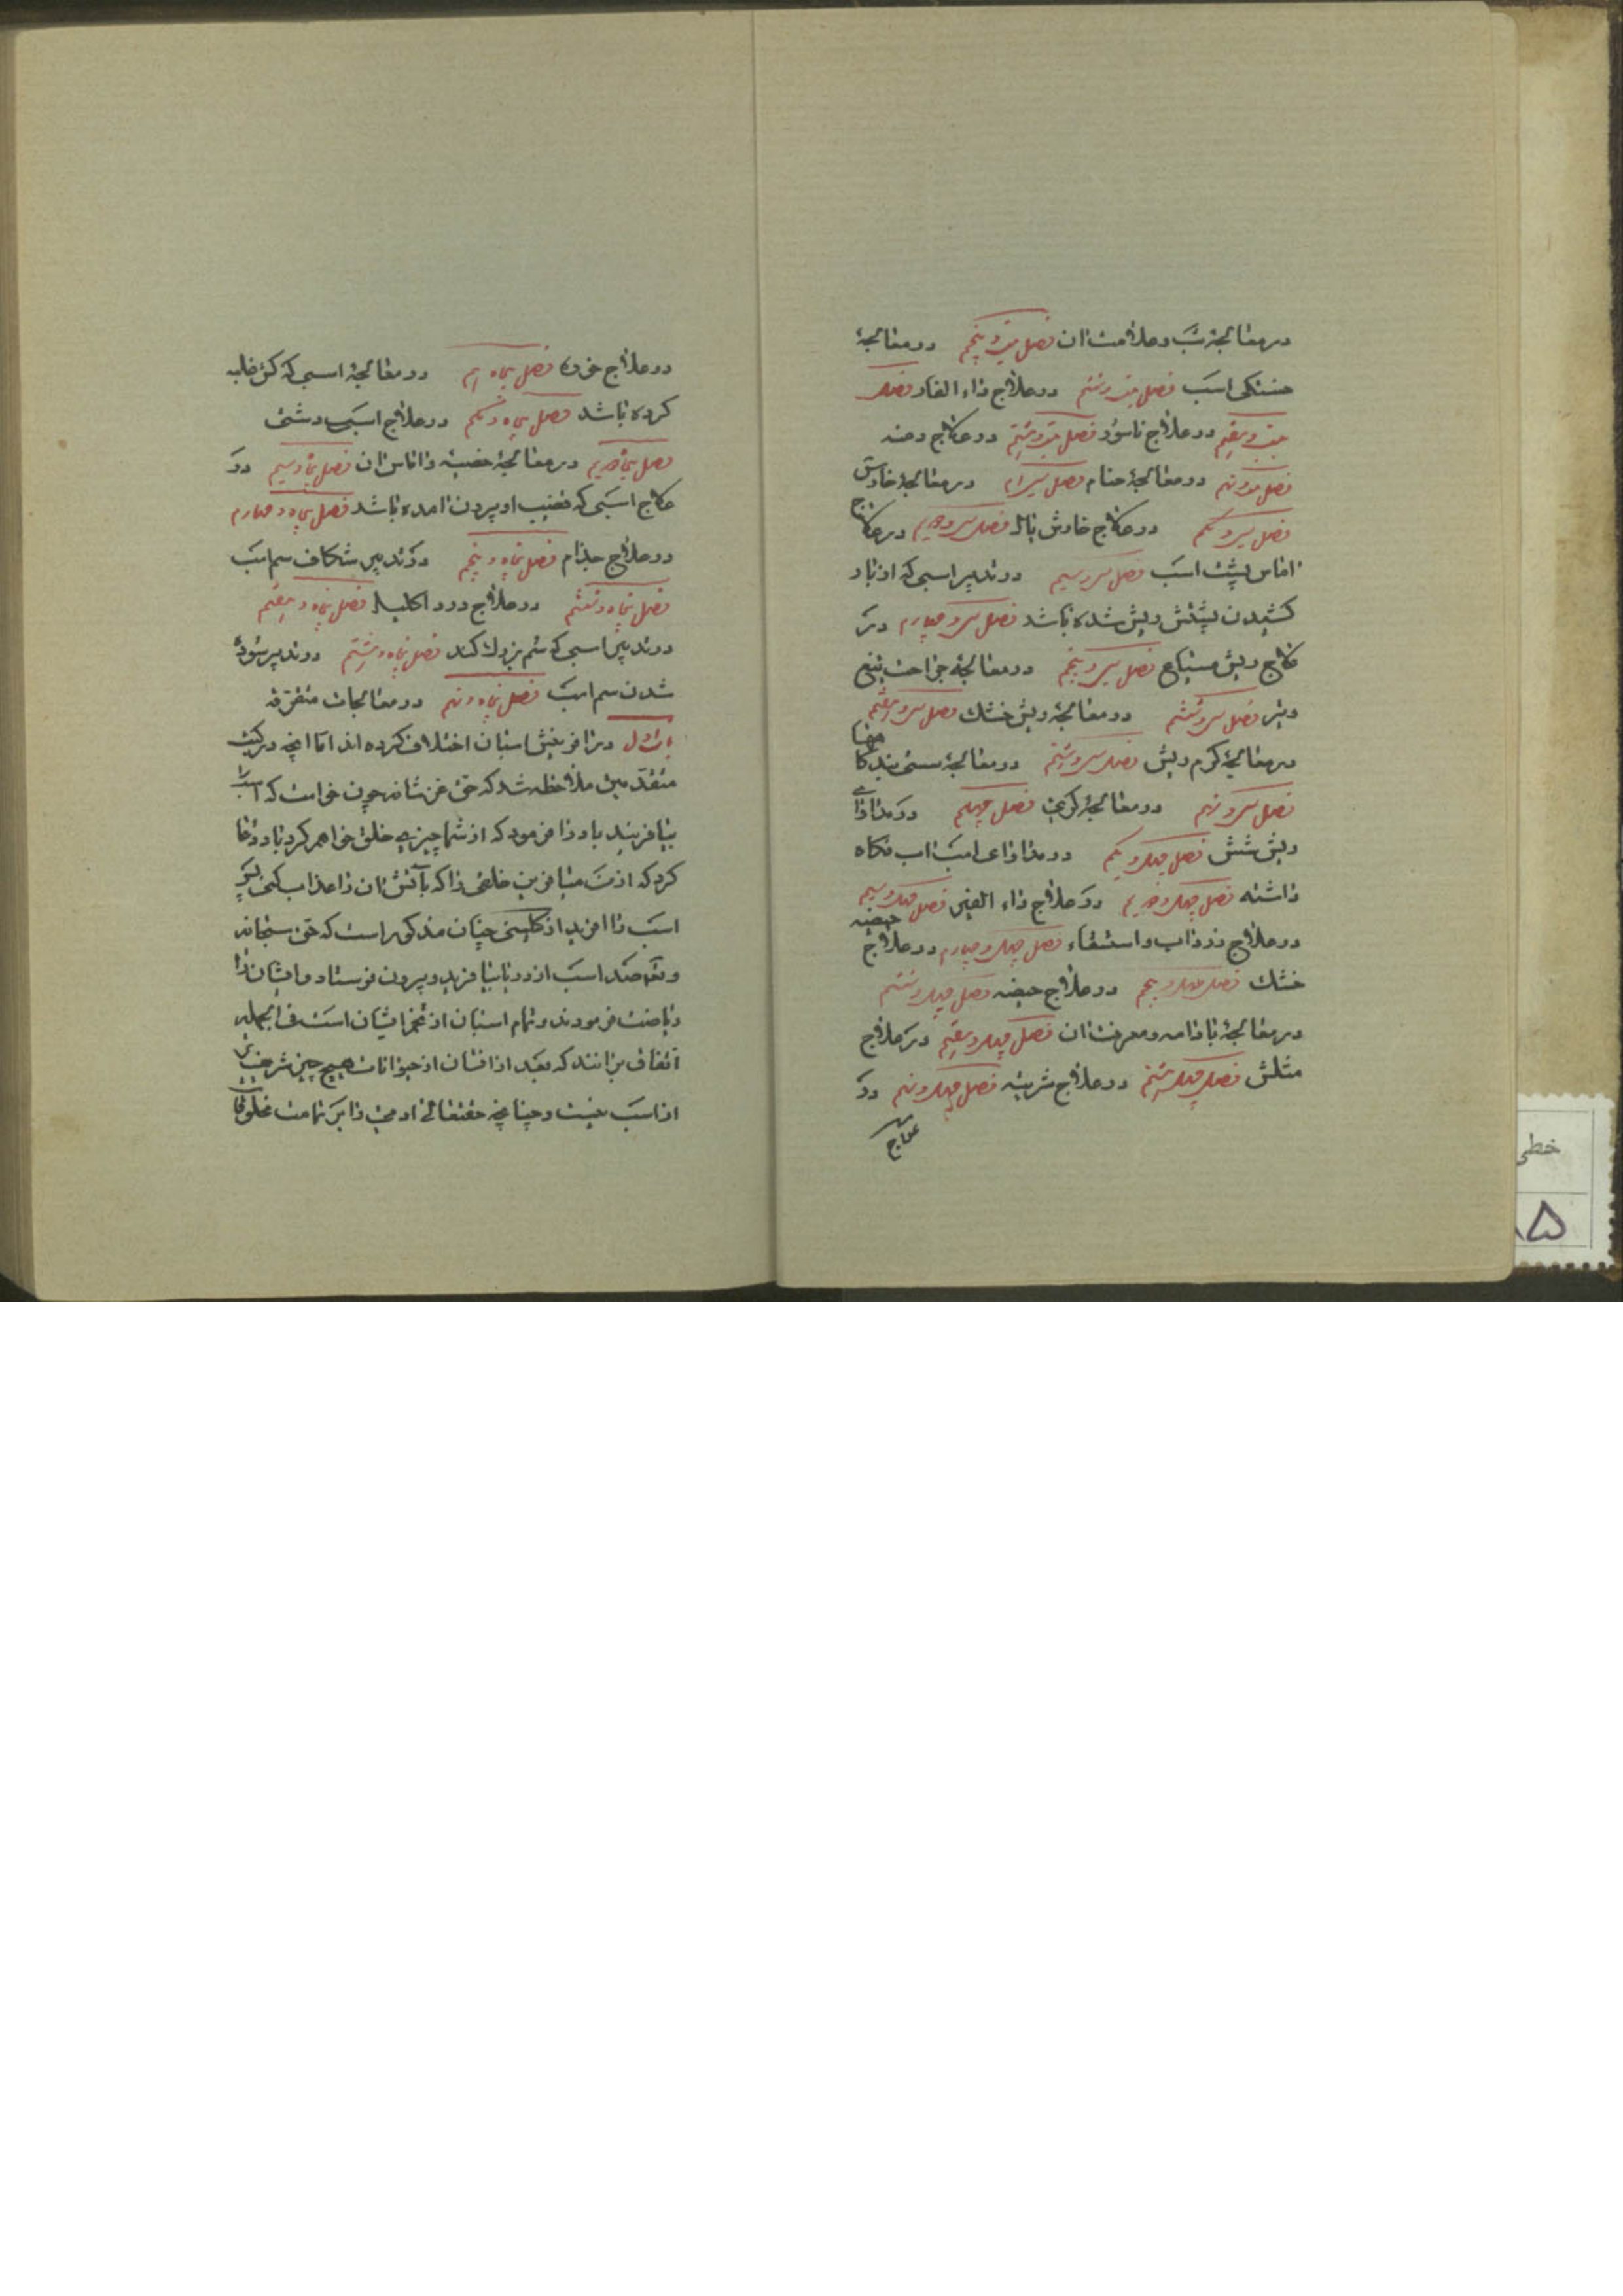 در معالجهٔ تب و علامت ان فصل بیست و پنجم در معالجهٔ
خستکی اسب فصل بیست و ششم در علاج داء الفار فصل
بیست و هفتم در علاج ناسور فصل بیست و هشتم در علاج دمنه
فصل بیست و نهم در معالجهٔ خنام فصل سی ام در معالجهٔ خارش
فصل سی و یکم در علاج خارش یال فصل سی و دویم در علاج
اماس پشت اسب فصل سی و سیم در تدبیر اسبی که از بار
کشیدن پشتش ریش شده باشد فصل سی و چهارم در
علاج ریش فصل سی و پنجم در معالجهٔ جراحت تیغ
و تیر فصل سی و ششم در معالجهٔ ریش خشک فصل سی و هفتم
در معالجهٔ کرم ریش فصل سی و هشتم در معالجهٔ سستی بندکاهها
فصل سی و نهم در معالجهٔ کری فصل چهلم در مداوای
ریش شش فصل چهل و یکم در مداوای اسب اب نکاه
داشته فصل چهل و دویم در علاج داء الفیل فصل چهل و سیم
در علاج زرداب و استسقاء فصل چهل و چهارم در علاج حیضه
خشک فصل چهل و پنجم در علاج حیضه فصل چهل و ششم
در معالجهٔ باد نامه و معرفت ان فصل چهل و هفتم در علاج
فصل چهل و هشتم در علاج فصل چهل و نهم در
علاج
در علاج فصل پنجاهم در معالجهٔ اسبی که کرم غلبه
کرده باشد فصل پنجاه و یکم در علاج اسب
فصل پنجاه و دویم در معالجهٔ خصیه و اماس ان فصل پنجاه و سیم در
علاج اسبی که قضیب او بیرون امده باشد فصل پنجاه و چهارم
در علاج جذام فصل پنجاه و پنجم در تدبیر شکاف سم اسب
فصل پنجاه و ششم در علاج درد اکلیل فصل پنجاه و هفتم
در تدبیر اسبی که سم بزرک کند فصل پنجاه و هشتم در تدبیر سوده
شدن سم اسب فصل پنجاه و نهم در معالجات متفرقه
باب اول در افرینش اسبان اختلاف کرده اند اما انچه در کتب
متقدمین ملاحظه شد که حق عز شانه چون خواست که اسب را
بیافریند باد را فرمود که از شما چیزی خلق خواهم کرد باد دعا
کرد که از من میافرین خلقی را که بآتش ان را عذاب کنی پس
اسب را افرید از کلینی چنان مذکور است که حق سبحانه
و تعالی صد اسب از دریا بیافرید و بیرون فرستاد و ایشان را
ریاضت فرمودند و تمام اسبان از تخم ایشان است فی الجمله
اتفاق برانند که بعد از انسان از حیوانات هیچ چیز شریفتر
از اسب نیست و چنانچه حقتعالی ادمی را بر تمامت مخلوقات